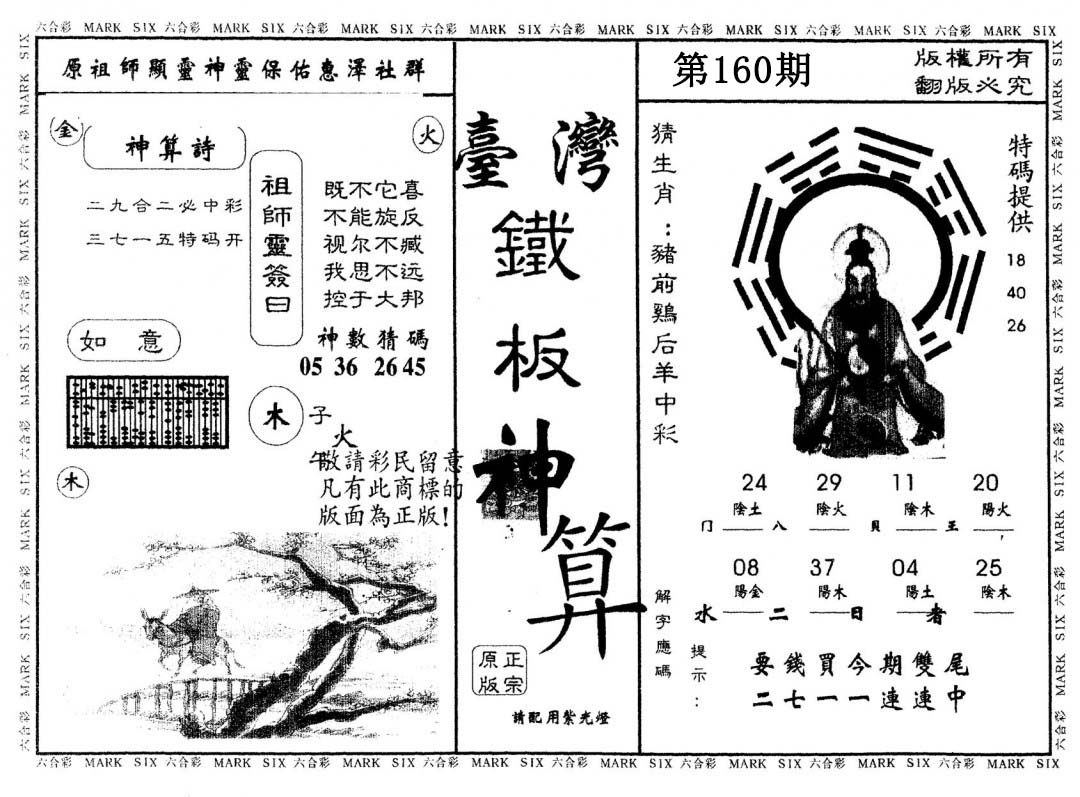 六合彩 MARK SIX 六合彩 MARK SIX 六合彩 MARK SIX 六合彩 MARK SIX 六合彩 MARK SIX 六合彩 MARK SIX 六合彩 MARK SIX 六合彩 MARK SIX
原祖師顯靈神靈保佑惠澤社群
金
神算詩
火
二九合二必中彩
三七一五特码开
祖師靈簽曰
既不它喜
不能旋反
视尔不臧
我思不远
控于大邦
神數猜碼
05 36 26 45
如意
木
子
火
午
木
敬請彩民留意
凡有此商標的
版面為正版!
臺灣
鐵
板
神
算
正宗
原版
請配用紫光燈
第160期
版權所有
翻版必究
猜生肖:豬前鷄后羊中彩
特碼提供
18
40
26
24 29 11 20
陰土 陰火 陰木 陽火
门 八 貝 王
08 37 04 25
陽金 陽木 陽土 陰木
水 二 日 者
解字應碼
提示:
要錢買今期雙尾
二七一一連連中
六合彩 MARK SIX 六合彩 MARK SIX 六合彩 MARK SIX 六合彩 MARK SIX 六合彩 MARK SIX 六合彩 MARK SIX 六合彩 MARK SIX 六合彩 MARK SIX